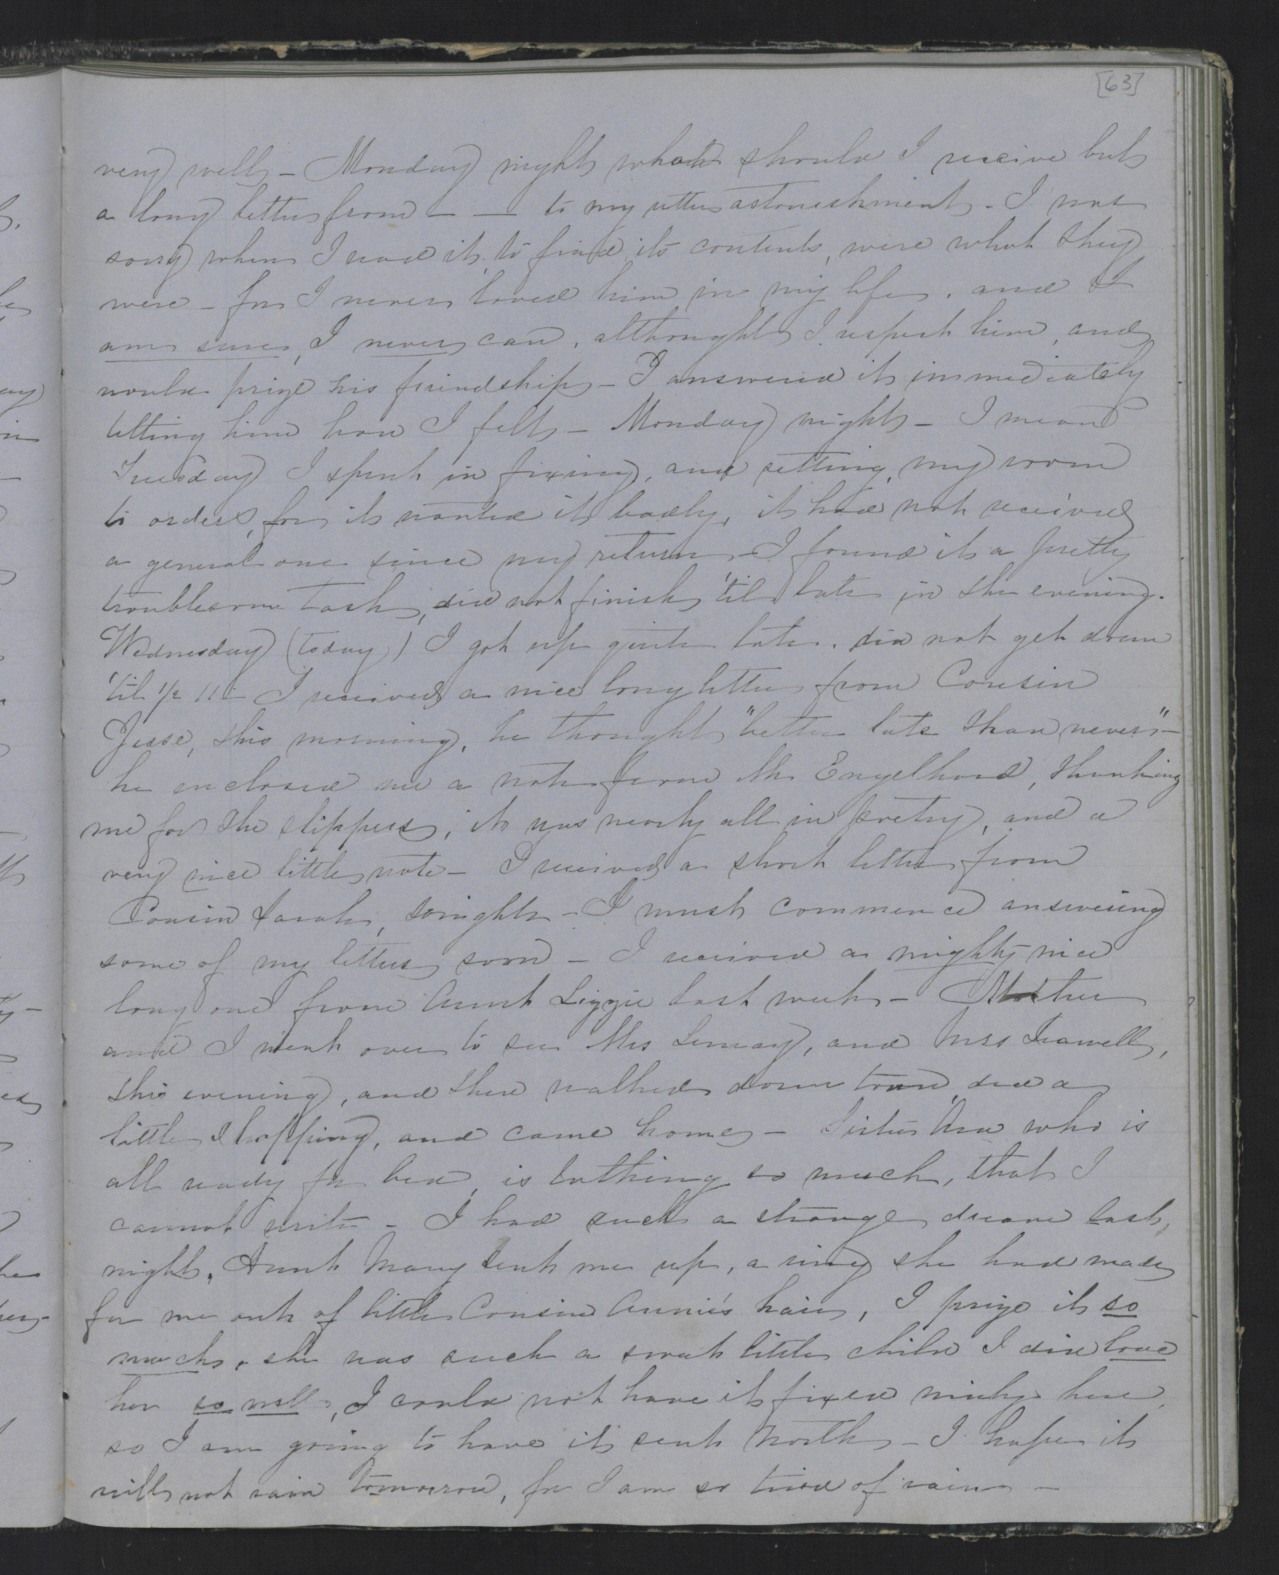 [63]
very well – Monday night what should I receive but
a long letter from — — to my utter astonishment – I was
sorry when I read it, to find its contents, were what they
were – for I never loved him in my life, and I
am sure, I never can, althought I respect him, and
would prize his friendship – I answered it immediately
letting him how I felt – Monday night – I mean
Tuesday I spent in fixing, and setting my room
to orders, for it wanted it badly, it had not received
a general one since my return – I found it a pretty
troublesome task, did not finish 'til late in the evening.
Wednesday (today) I got up quite late. did not get down
'til ½ 11 – I received a nice long letter from Cousin
Jesse, this morning, he thought "better late than never" –
he enclosed me a note from Mr Engelhard, thanking
me for the slippers, it was nearly all in poetry, and a
very nice little note – I received a short letter from
Cousin Sarah, tonight – I must commence answering
some of my letters soon – I received a mighty nice
long one from Aunt Lizzie last week – Mother
and I went over to see Mrs Lemay, and Mrs
this evening, and then walked down town, did a
little shopping, and came home – Sister Ann who is
all ready for bed, is so much, that I
cannot write – I had such a strange dream last,
night, Aunt Mary sent me up, a ring she had made
for me out of little Cousin Annie's hair, I prize it so
much, she was such a sweet little child I did love
her so well, I could not have it fixed nicely here,
so I am going to have it sent North – I hope it
will not rain tomorrow, for I am so tired of rain –